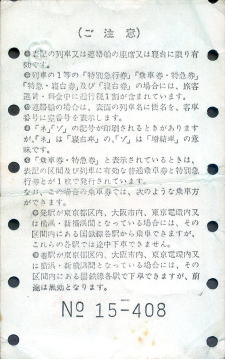 (ご注意)
●表記の列車又は連絡船の座席又は寝台に限り有
効です。
●列車の1等の「特別急行券」「乗車券・特急券」
「特急・寝台券」及び「寝台券」の場合には、旅客
運賃・料金中に通行税1割が含まれています。
●連絡船の場合は、表面の列車名に便名を、客車
番号に室番号を表示します。
●「ネ」「ゾ」の記号が印刷されるときがあります
が、「ネ」は「寝台車」の、「ゾ」は「増結車」の意
味です。
●「乗車券・特急券」と表示されているときは、
表記の区間及び列車に有効な普通乗車券と特別急
行券とが1枚で発行されています。
なお、この場合の乗車券では、次のような乗車方
ができます。
●発駅が東京都区内、大阪市内、東京電環内又
は横浜・新横浜間となっている場合には、その
区間内にある国鉄線各駅から乗車できますが、
これらの各駅では途中下車できません。
●着駅が東京都区内、大阪市内、東京電環内又
は横浜・新横浜間となっている場合には、その
区間内にある国鉄線各駅で下車できますが、前
途は無効となります。
№ 15-408